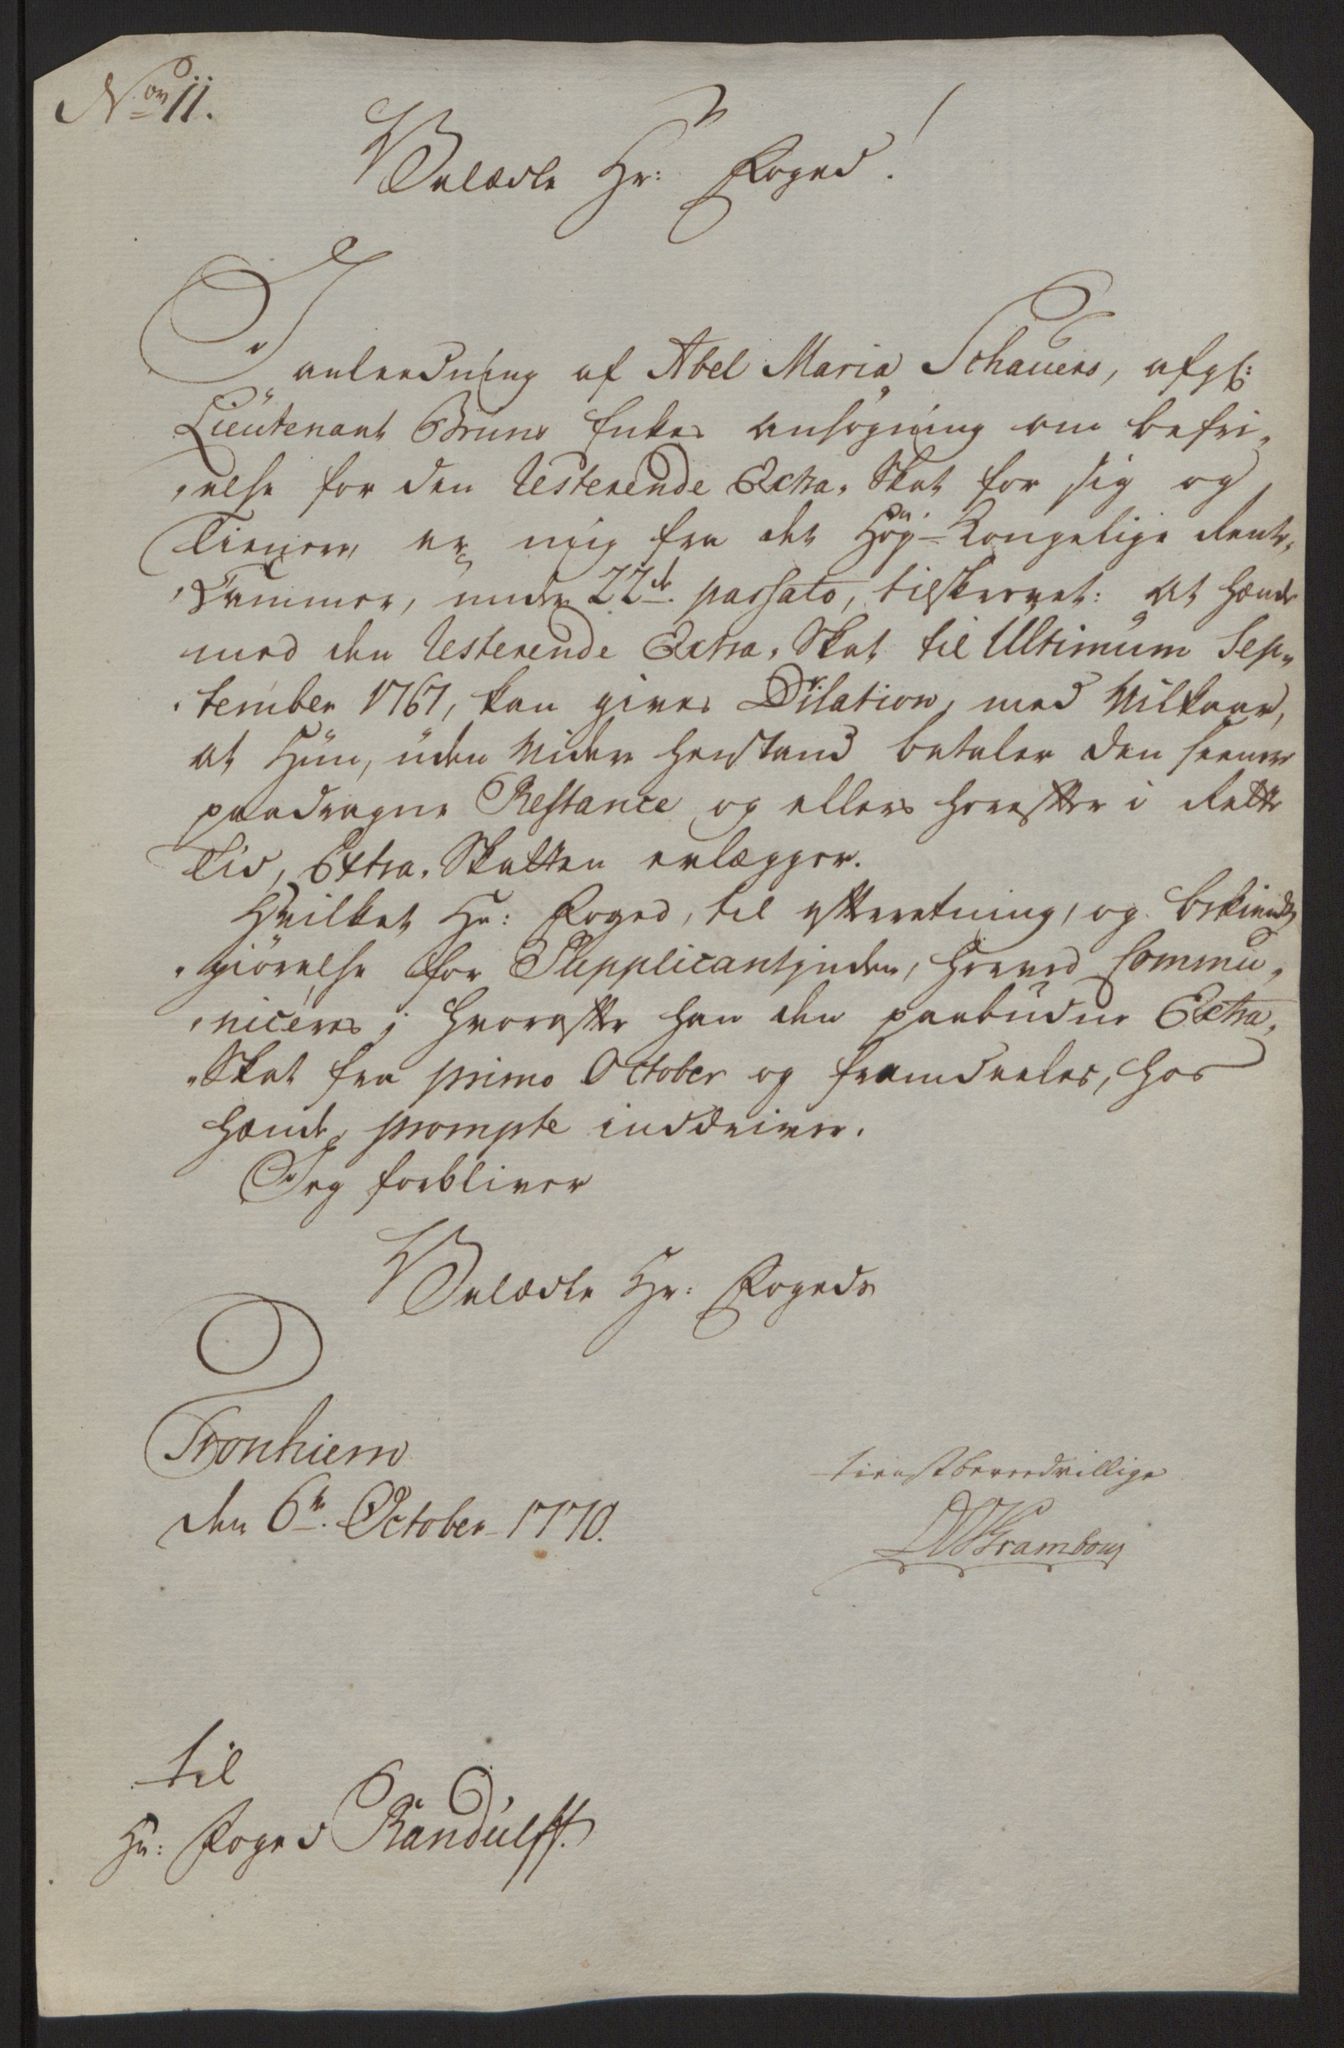 No 11.
Velædle Hr: Foged!
I anleedning af Abel Maria Schauers, afgl:
Lieutenant Bruns Enkes ansøgning om befri„
„else for den resterende Extra-Skat for sig og
Tienere, er mig fra det Høy-Kongelige Rente„
„Kammer, under 22de passato, tilskrevet: at hende
med den resterende Extra-Skat til Ultimum Sep„
„tember 1767, kan gives Dilation, med Vilkaar,
at Hun, uden videre henstand betaler den seenere
paadragne Restance, og ellers herefter i rette
Tid, Extra-Skatten erlægger.
Hvilket Hr: Foged, til efterretning, og bekiendt„
„giørelse for Supplicantinden, herved Commu„
„niceres; hvorefter han den paabudne Extra„
„Skat fra primo October og fremdeeles, hos
hende prompte inddriver.
Jeg forbliver
Velædle Hr: Fogeds
Tronhiem
den 6te October 1770.
tienstbereedvillige
DVKrambou
til
Hr: Foged Randulff.